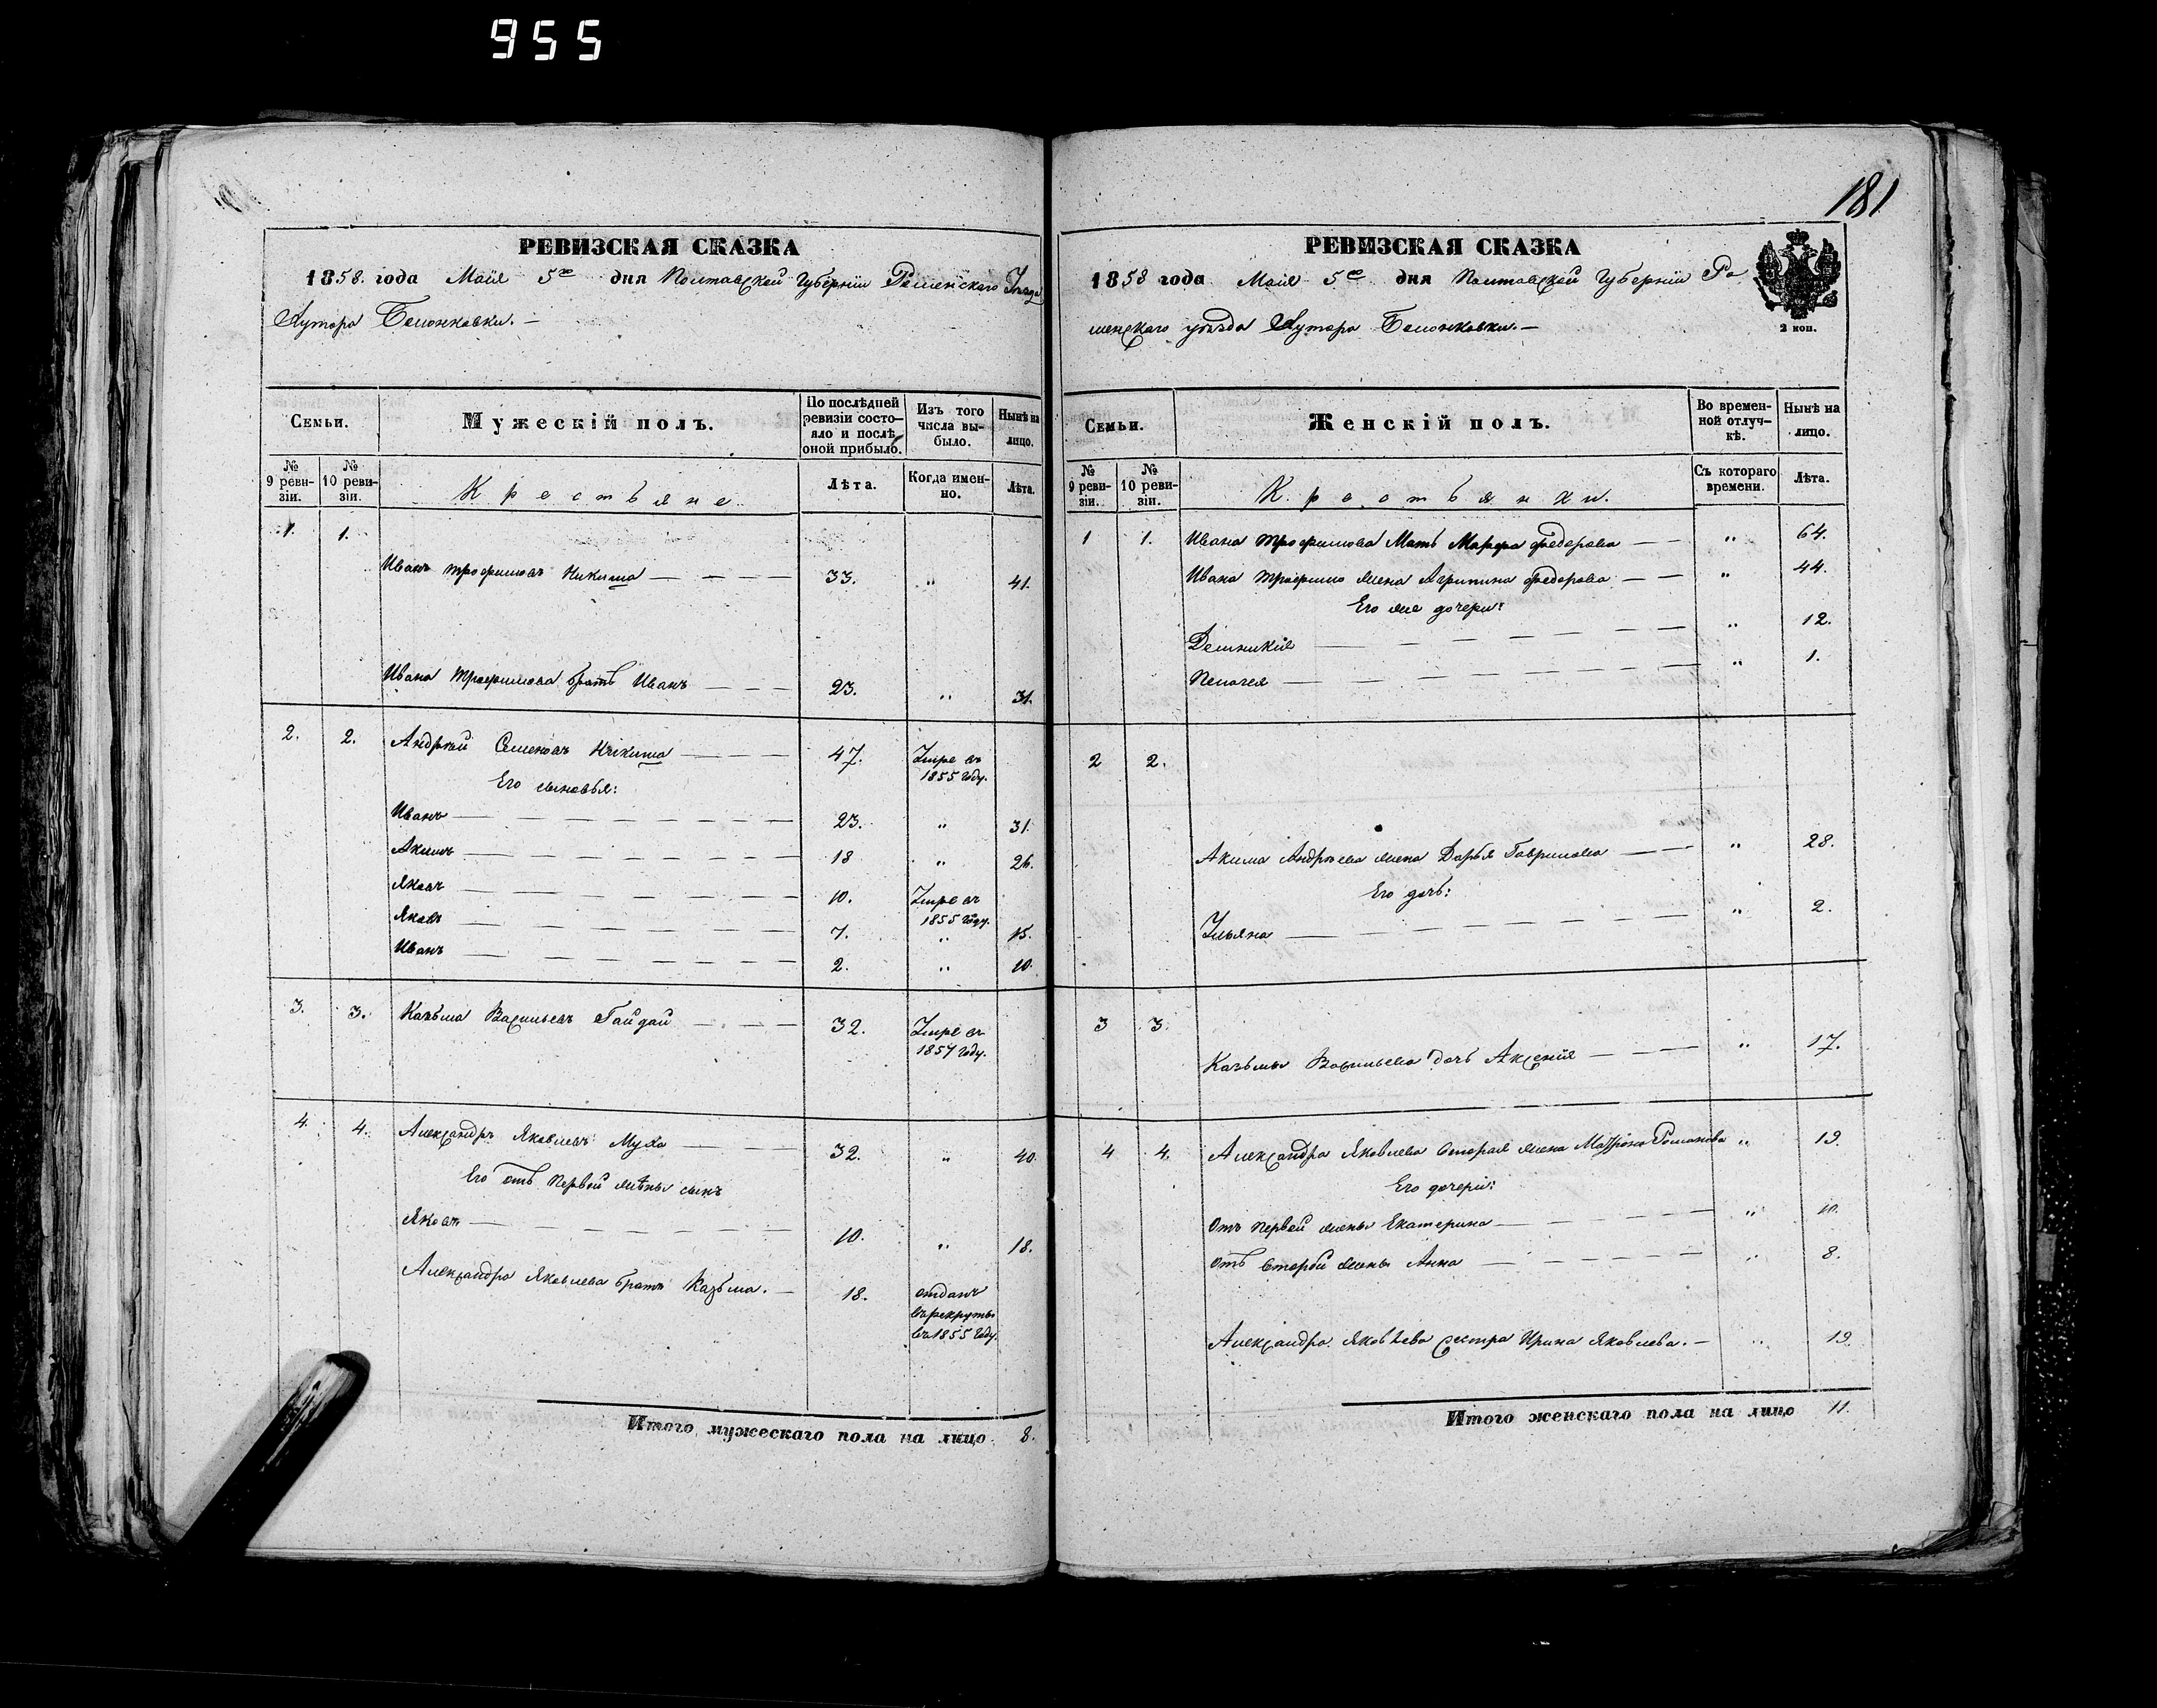 955
181
РЕВИЗСКАЯ СКАЗКА
1858. года Маія 5го дня Полтавской Губерніи Роменскаго Уѣзда
Хутора
Семьи.
Мужескій полъ.
По послѣдней ревизіи состояло и послѣ оной прибыло.
Изъ того числа выбыло.
Нынѣ на лицо.
№ 9 ревизіи.
№ 10 ревизіи.
Крестьяне
Лѣта.
Когда именно.
Лѣта.
1. 1.
Иванъ Трофимовъ Никиша — 33. „ 41.
Ивана Трофимова братъ Иванъ — 23. „ 31.
2. 2. Андрѣй Семеновъ Никиша — 47. Умре въ 1855 году.
Его сыновья:
Иванъ — 23. „ 31.
Акимъ — 18 „ 26.
Яковъ — 10. Умре въ 1855 году.
Яковъ — 7. „ 15.
Иванъ — 2. „ 10.
3. 3. Казьма Васильевъ Гайдай — 32. Умре въ 1857 году.
4. 4. Александръ Яковлевъ Муха — 32. „ 40.
Его отъ первой жѣны сынъ
Яковъ — 10. „ 18.
Александра Яковлева братъ Казьма. — 18. отданъ въ рекруты въ 1855 году.
Итого мужескаго пола на лицо 8.
РЕВИЗСКАЯ СКАЗКА
1858 года Маія 5го дня Полтавской Губерніи Ро
менскаго уѣзда Хутора
2 коп.
Семьи.
Женскій полъ.
Во временной отлучкѣ.
Нынѣ на лицо.
№ 9 ревизіи.
№ 10 ревизіи.
Крестьянки.
Съ котораго времени.
Лѣта.
1 1. Ивана Трофимова Мать Марфа Федорова — „ 64.
Ивана Трофимо жена Агрипина Федорова — „ 44.
Его же дочери:
Демникія — „ 12.
Пелагея — „ 1.
2 2.
Акима Андрѣева жена Дарья Гаврилова — „ 28.
Его дочь:
Ульяна — „ 2.
3 3.
Казьмы Васильева дочь Аксенія — „ 17.
4 4. Александра Яковлева вторая жена Матрона Романова „ 19.
Его дочери:
Отъ первой жены Екатерина — „ 10.
Отъ второй жены Анна — „ 8.
Александра Яковлева сестра Ирина Яковлева. — „ 19.
Итого женскаго пола на лицо 11.